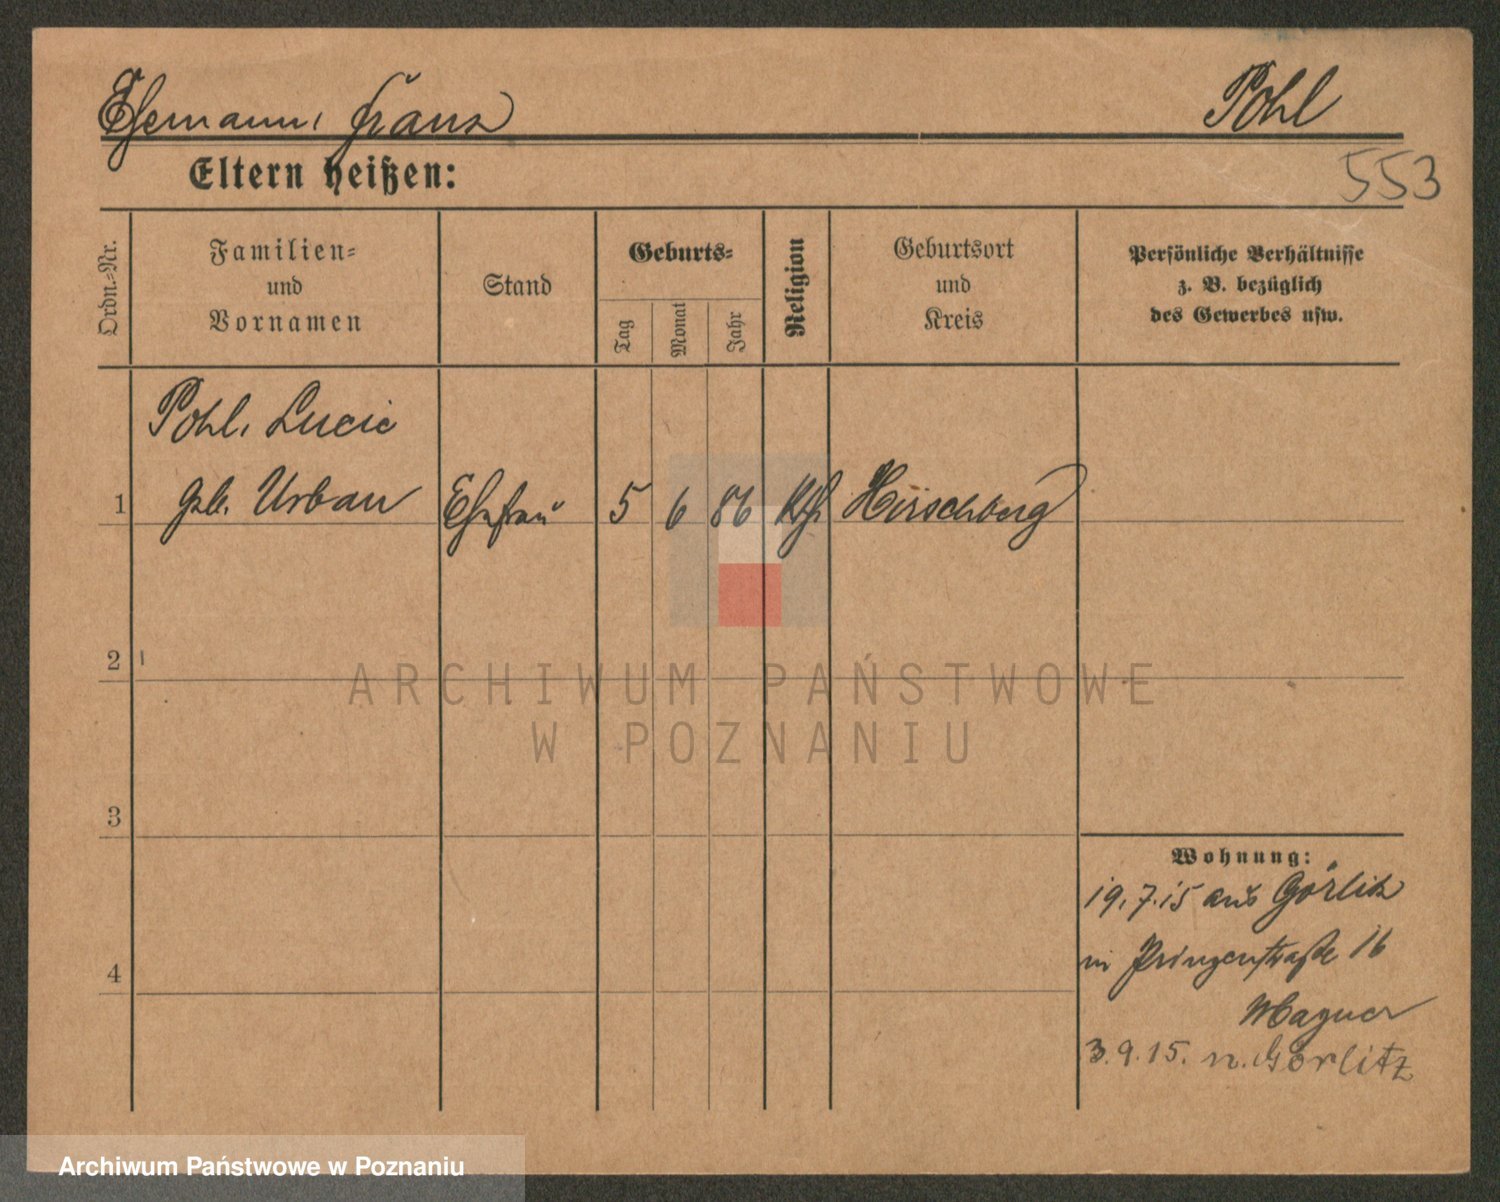 Ehemann, Franz Pohl
Eltern heißen: 553
Ordn.=Nr.
Familien=
und
Vornamen
Stand
Geburts=
Tag
Monat
Jahr
Religion
Geburtsort
und
Kreis
Persönliche Verhältnisse
z. B. bezüglich
des Gewerbes usw.
Pohl, Lucie
1 geb. Urban Ehefrau 5 6 86 kth. Hirschberg
2
3
4
Wohnung:
19.7.15 aus Görlitz
in Prinzenstraße 16
Wagner
3.9.15. n. Görlitz
ARCHIWUM PAŃSTWOWE
W POZNANIU
Archiwum Państwowe w Poznaniu